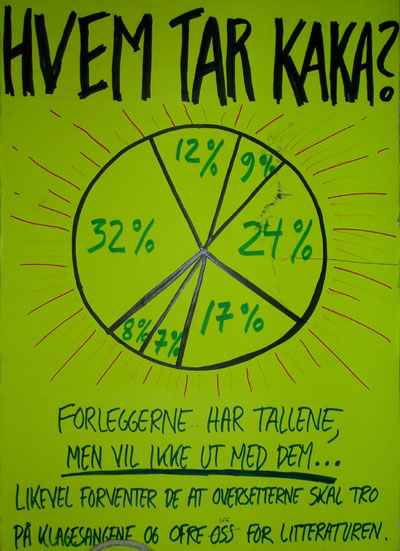 HVEM TAR KAKA?
12% 9%
32% 24%
8% 7% 17%
FORLEGGERNE HAR TALLENE,
MEN VIL IKKE UT MED DEM...
LIKEVEL FORVENTER DE AT OVERSETTERNE SKAL TRO
PÅ KLAGESANGENE OG OFRE OSS FOR LITTERATUREN.